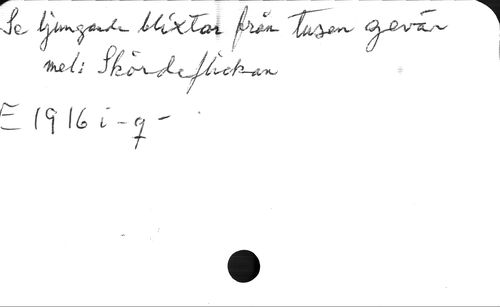 Se ljungande blixtar från tusen gevär
mel: Skördeflickan
E 1916 i - q -